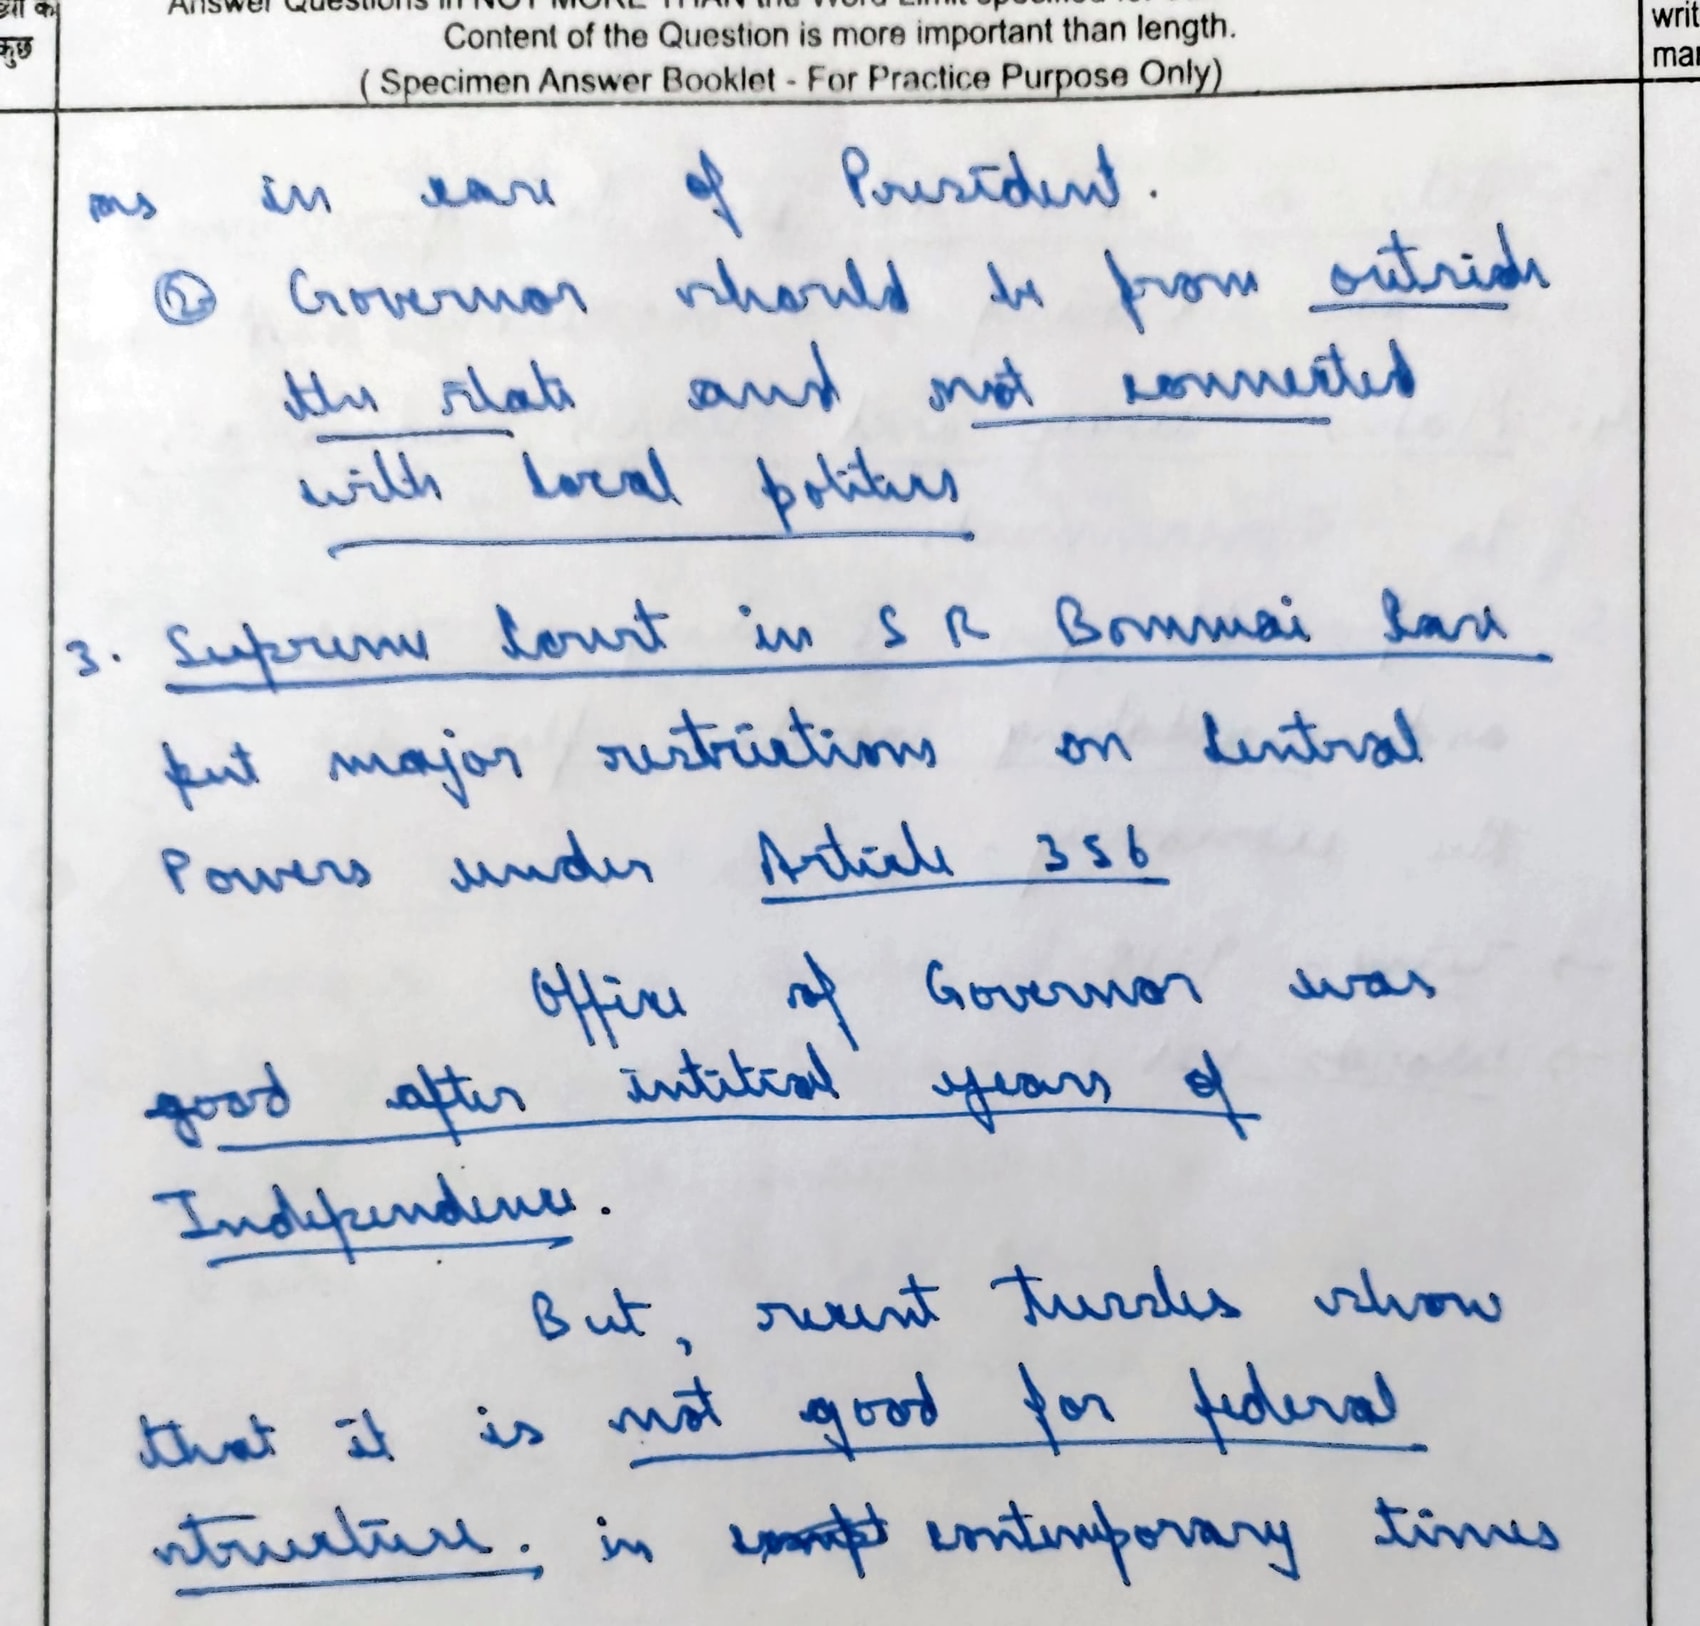 Answer Questions in NOT MORE THAN the Word Limit specified for
Content of the Question is more important than length.
( Specimen Answer Booklet - For Practice Purpose Only)
कुछ
writ
mar
as in case of President.
② Governor should be from outside
the state and not connected
with local politics
3. Supreme Court in S R Bommai Case
put major restrictions on Central
Powers under Article 356
Office of Governor was
good after intitial years of
Independence.
But, recent tussles show
that it is not good for federal
structure. in contemporary times